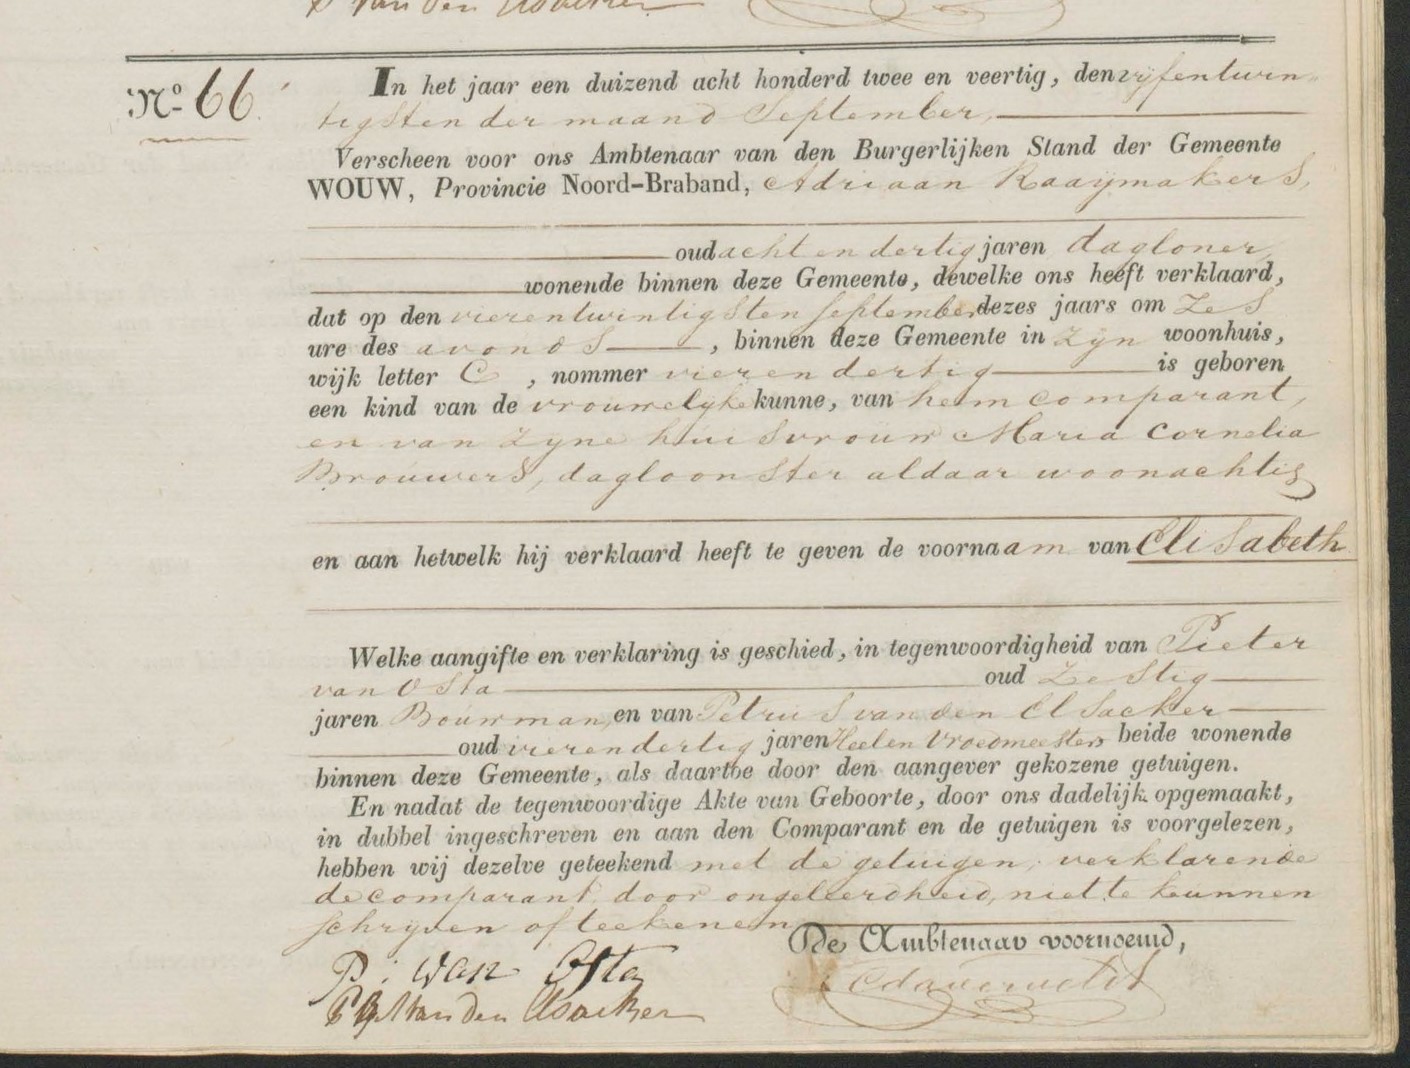 P van den
No 66.
In het jaar een duizend acht honderd twee en veertig, den vyfentwin-
tigsten der maand September,
Verscheen voor ons Ambtenaar van den Burgerlijken Stand der Gemeente
WOUW, Provincie Noord-Braband, Adriaan Raaymakers,
oud acht en dertig jaren dagloner,
wonende binnen deze Gemeente, dewelke ons heeft verklaard,
dat op den vierentwintigsten September dezes jaars om zes
ure des avonds, binnen deze Gemeente in zyn woonhuis,
wijk letter C, nommer vierendertig is geboren
een kind van de vrouwelyke kunne, van hem comparant,
en van zyne huisvrouw Maria Cornelia
Brouwers, dagloonster aldaar woonachtig
en aan hetwelk hij verklaard heeft te geven de voornaam van Elisabeth
Welke aangifte en verklaring is geschied, in tegenwoordigheid van Pieter
van Osta oud zestig
jaren Bouwman, en van Petrus van den Elsacker
oud vierendertig jaren Heelen Vroedmeester beide wonende
binnen deze Gemeente, als daartoe door den aangever gekozene getuigen.
En nadat de tegenwoordige Akte van Geboorte, door ons dadelijk opgemaakt,
in dubbel ingeschreven en aan den Comparant en de getuigen is voorgelezen,
hebben wij dezelve geteekend met de getuigen, verklarende
de comparant, door ongeleerdheid, niet te kunnen
schryven of teekenen.
De Ambtenaar voornoemd,
P: van Osta
van den